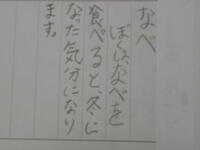 なべ
ぼくは、なべを
食べると、冬に
なった気分になり
ます。